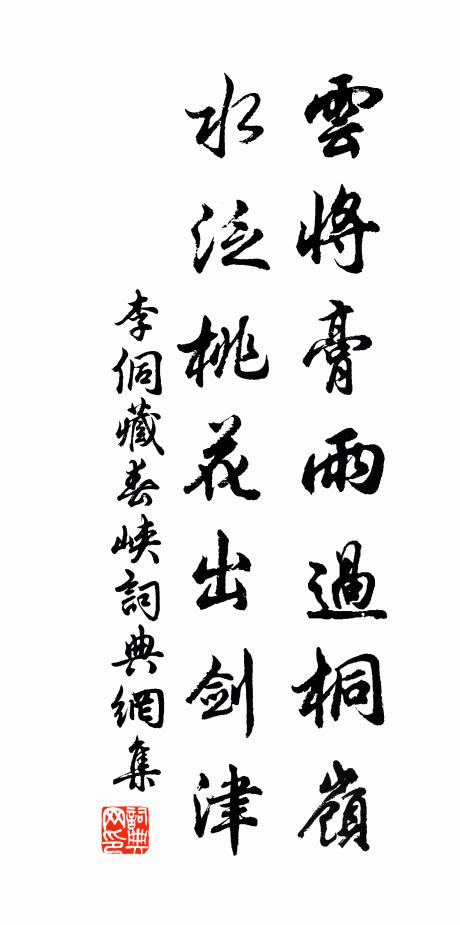 雲將膏雨過桐嶺
水泛桃花出劍津
李侗藏春峽詞典網集
詞典网印